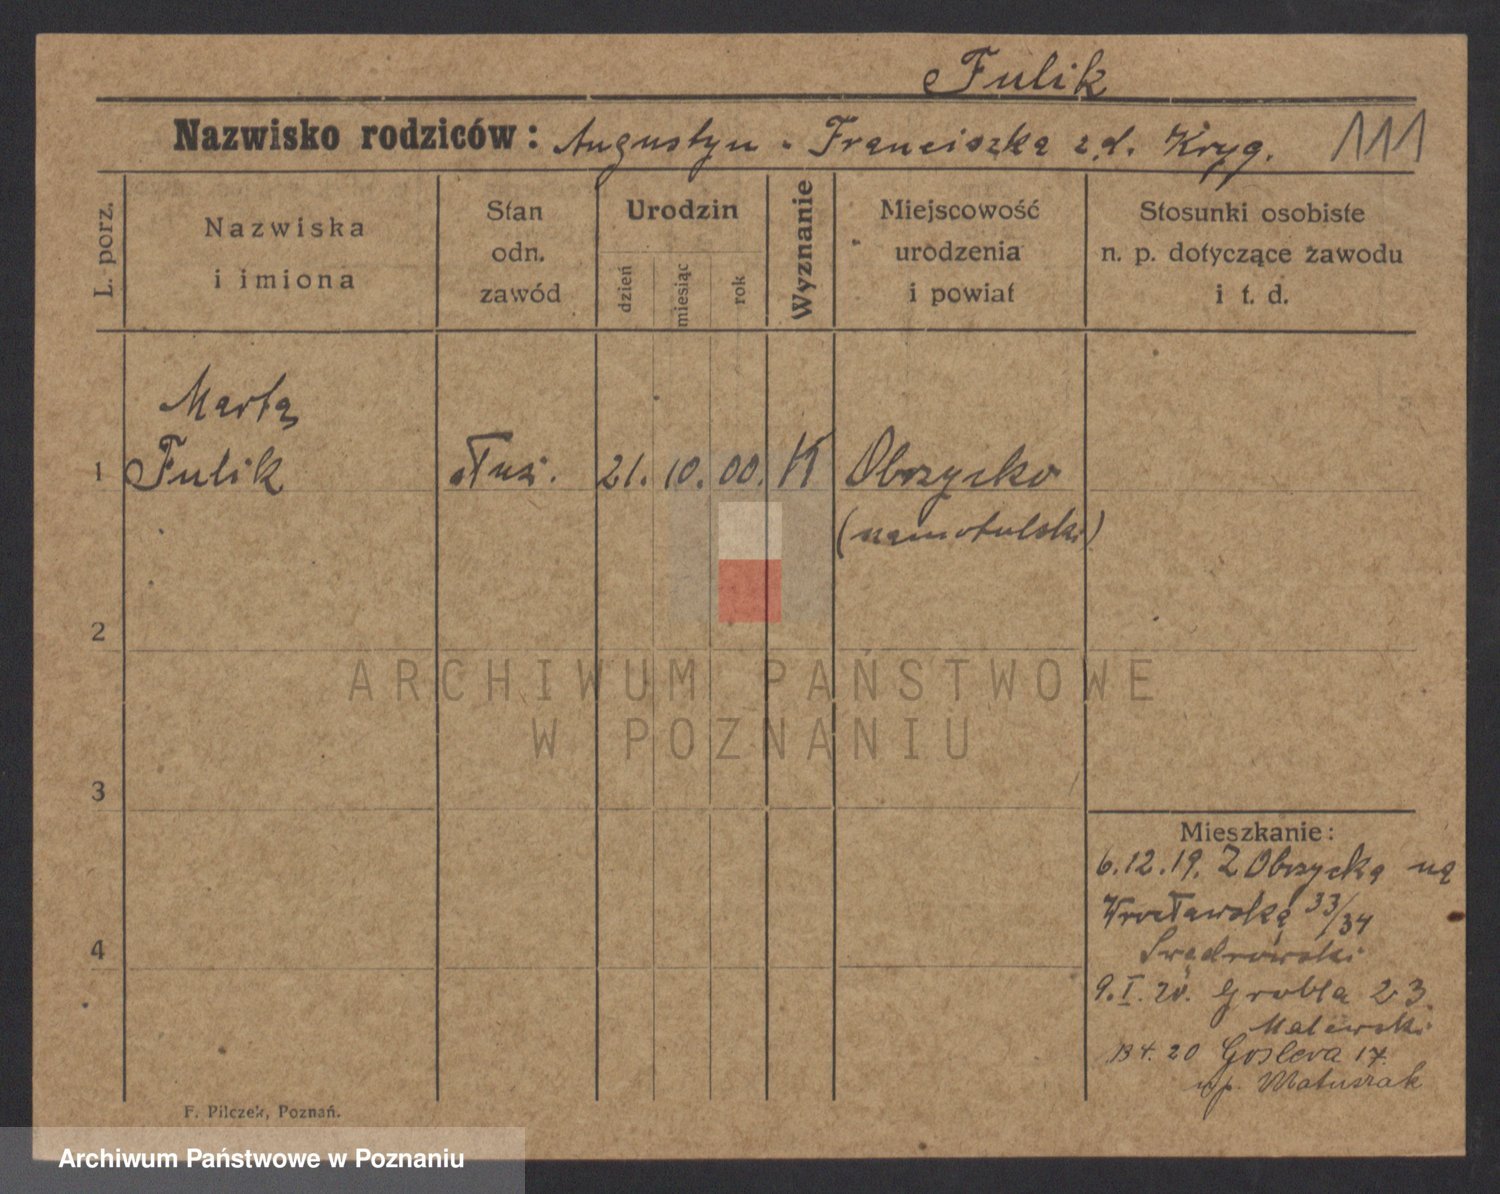 Fulik
Nazwisko rodziców: Augustyn - Franciszka z d. Kryg.
111
L. porz.
Nazwiska
i imiona
Stan
odn.
zawód
Urodzin
dzień
miesiąc
rok
Wyznanie
Miejscowość
urodzenia
i powiat
Stosunki osobiste
n. p. dotyczące zawodu
i t. d.
Marta
1 Fulik służ. 21. 10. 00. K Obrzycko
(szamotulski)
2
3
4
ARCHIWUM PAŃSTWOWE
W POZNANIU
Mieszkanie:
6.12.19. Z Obrzycka na
Wrocławską 33/34
9.I.20. Grobla 23
Malewski
13 4. 20 Goslera 17.
up. Matuszak
F. Pilczek, Poznań.
Archiwum Państwowe w Poznaniu